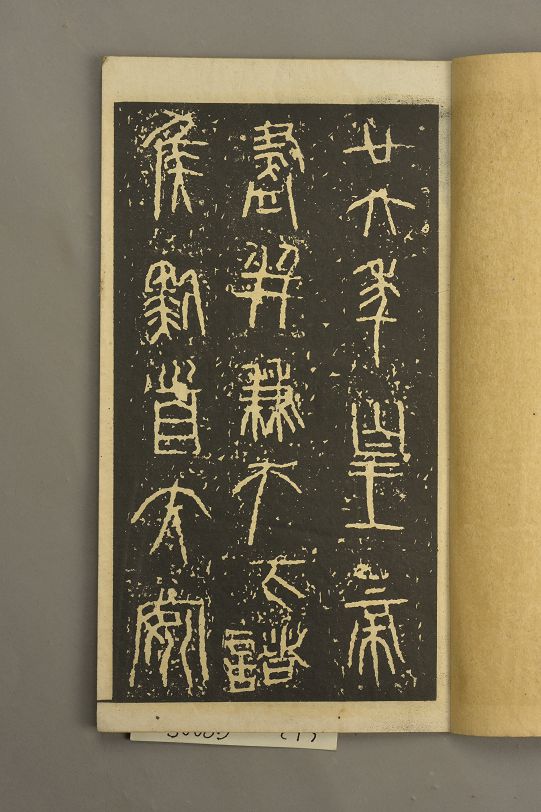 廿六年皇帝
盡并兼天下諸
侯黔首大安